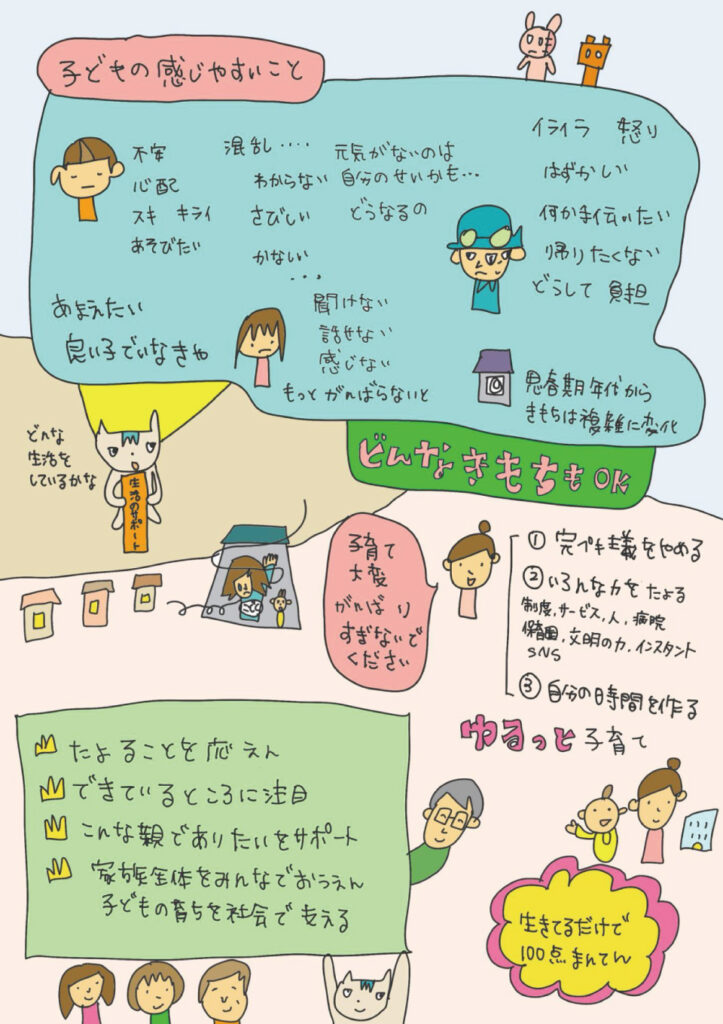 子どもの感じやすいこと
不安
心配
スキ キライ
あそびたい
混乱‥‥
わからない
さびしい
かない
...
元気がないのは
自分のせいかも…
どうなるの
イライラ 怒り
はずかしい
何か手伝いたい
帰りたくない
どうして 負担
あまえたい
良い子でいなきゃ
聞けない
話せない
感じない
もっとがんばらないと
思春期年代から
きもちは複雑に変化
どんなきもちもOK
どんな
生活を
しているかな
生活のサポート
子育て
大変
がんばり
すぎないで
ください
① 完ペキ主義をやめる
② いろんな力をたよる
制度,サービス,人,病院
保育園,文明の力,インスタント
SNS
③ 自分の時間を作る
ゆるっと子育て
たよることを応えん
できているところに注目
こんな親でありたいをサポート
家族全体をみんなでおうえん
子どもの育ちを社会で支える
生きてるだけで
100点まんてん